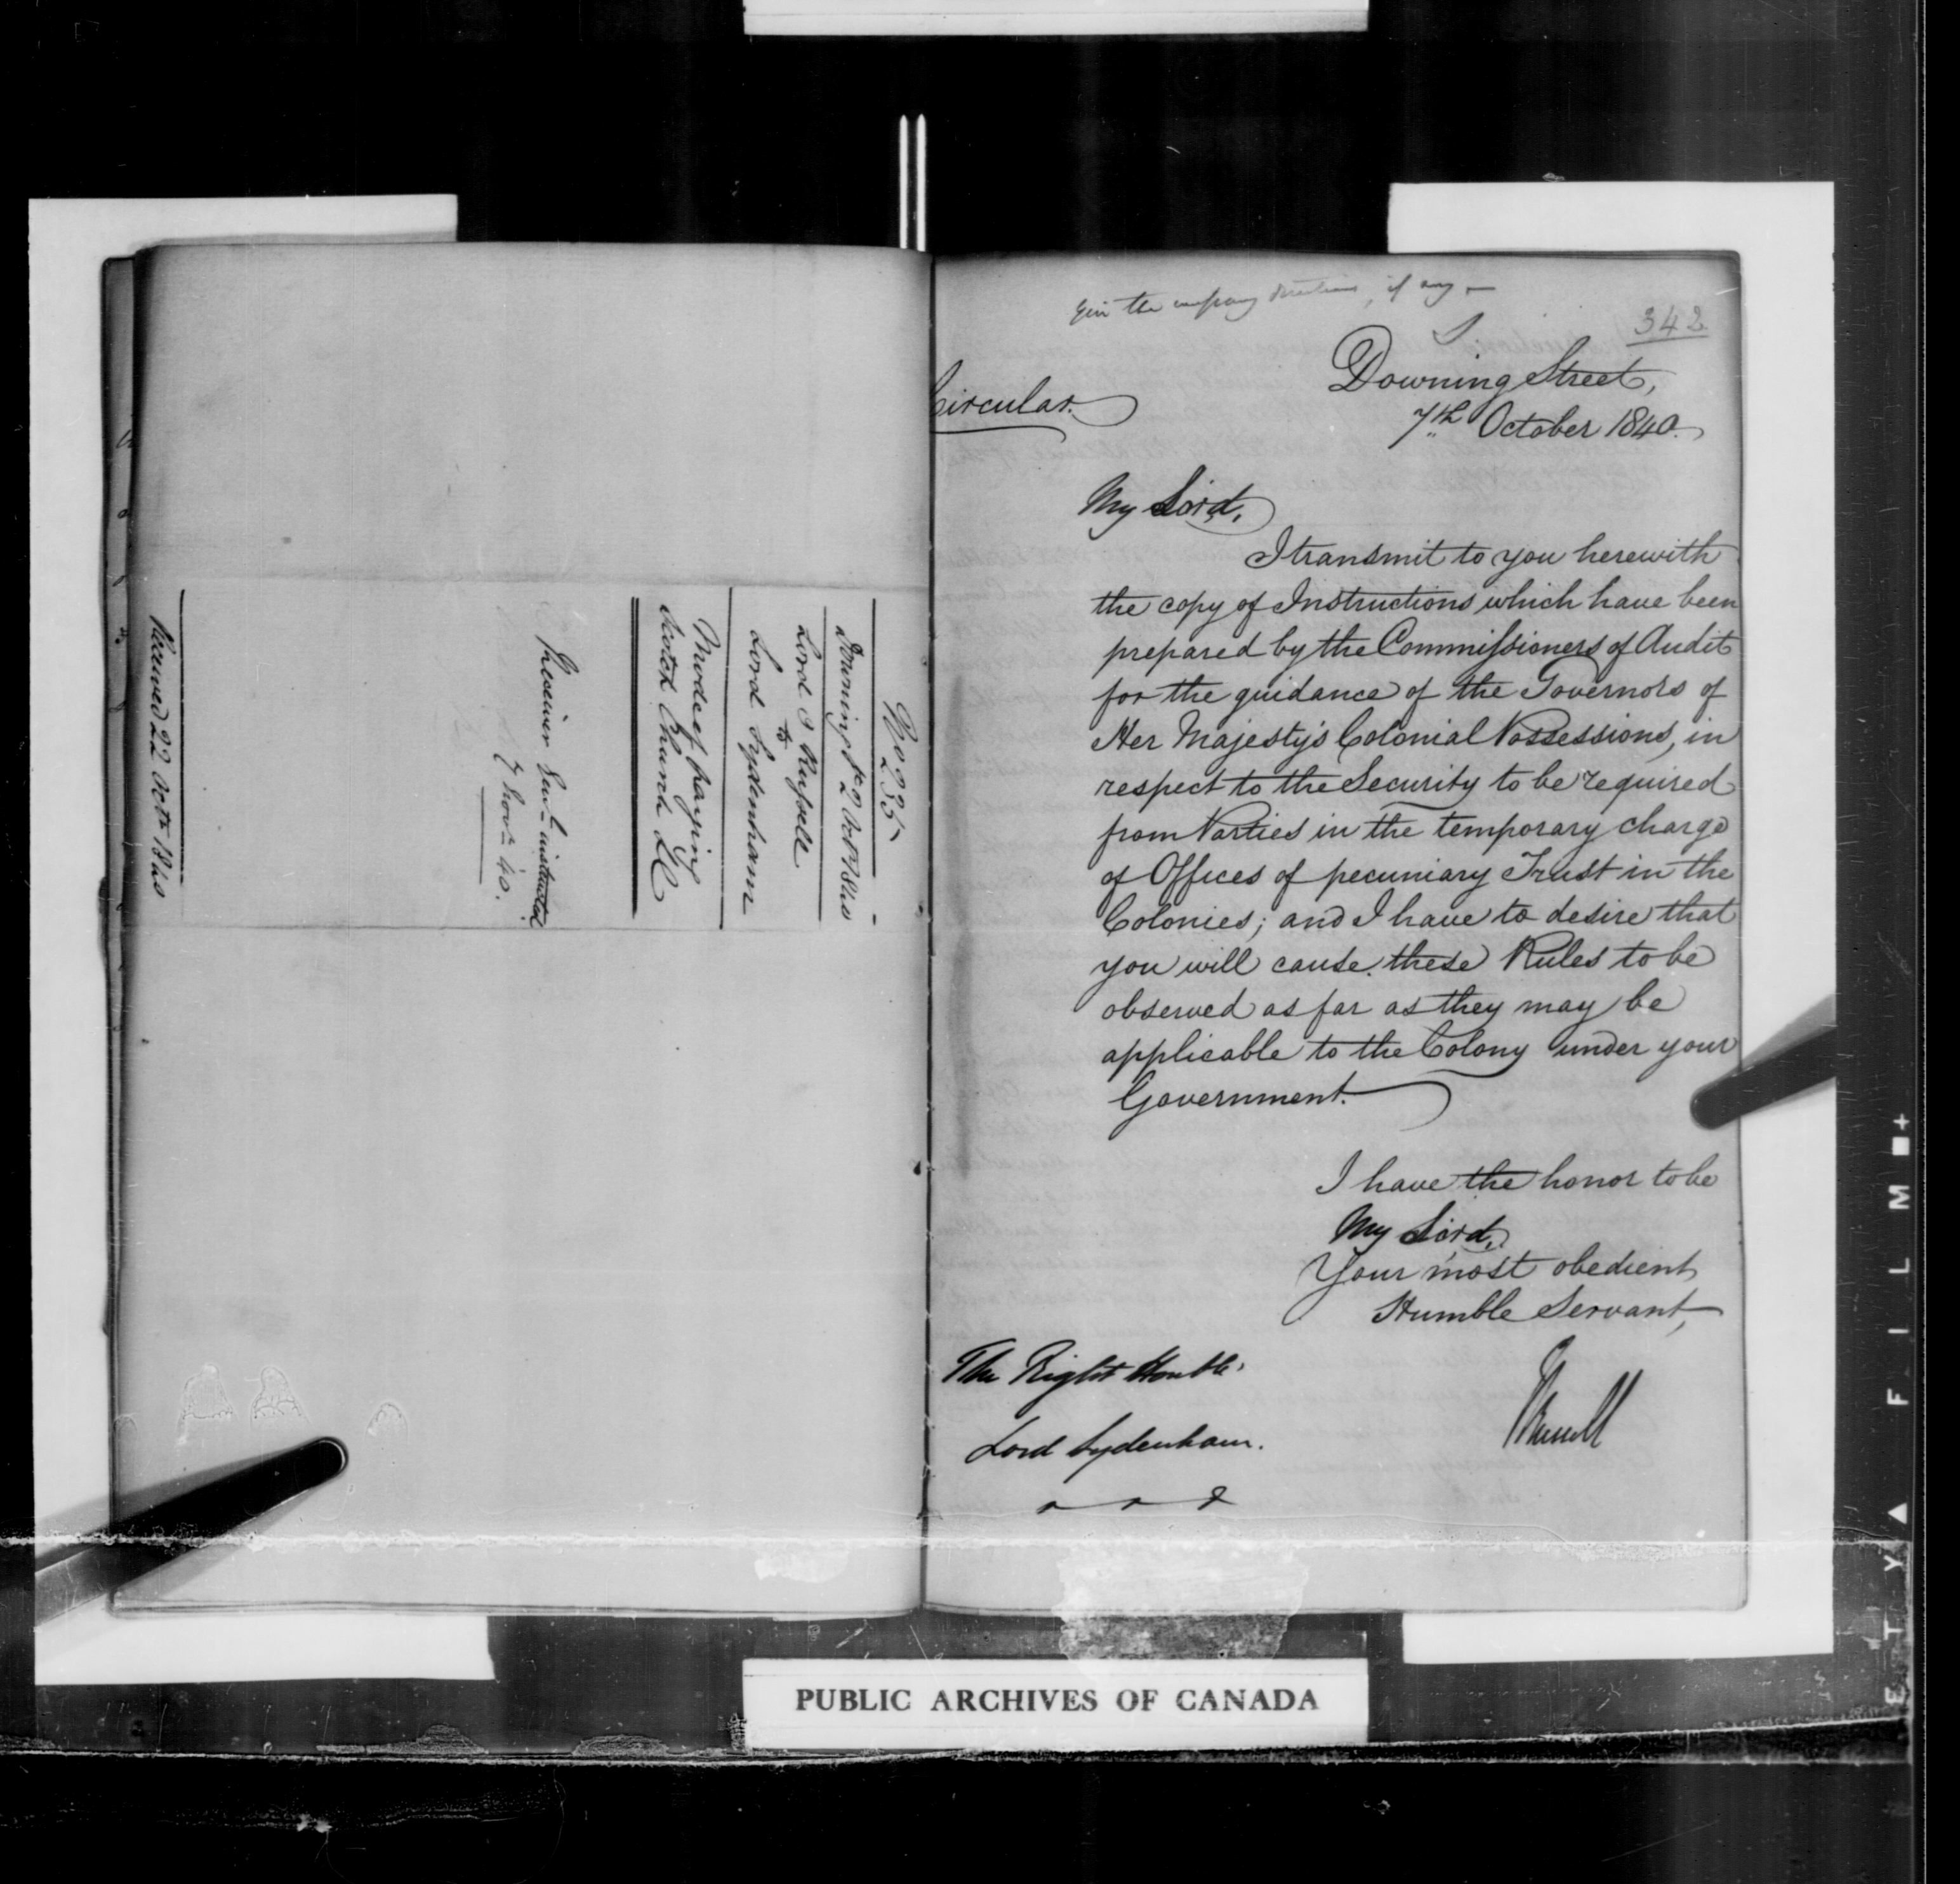 No 235
Downing St 2 Oct 1840
Lord J Russell
to
Lord Sydenham
Mode of paying
Scotch Church LC
Receiver Genl instructed
7 Novr 40.
Received 22 Octr 1840
Give the necessary directions, if any —
342
Downing Street,
7th October 1840.
Circular.
My Lord,
I transmit to you herewith
the copy of Instructions which have been
prepared by the Commissioners of Audit
for the guidance of the Governors of
Her Majesty's Colonial Possessions, in
respect to the Security to be required
from Parties in the temporary charge
of Offices of pecuniary Trust in the
Colonies; and I have to desire that
you will cause these Rules to be
observed as far as they may be
applicable to the Colony under your
Government.
I have the honor to be
My Lord,
Your most obedient
Humble Servant,
J Russell
The Right Honble
Lord Sydenham.
PUBLIC ARCHIVES OF CANADA
SAFETY FILM